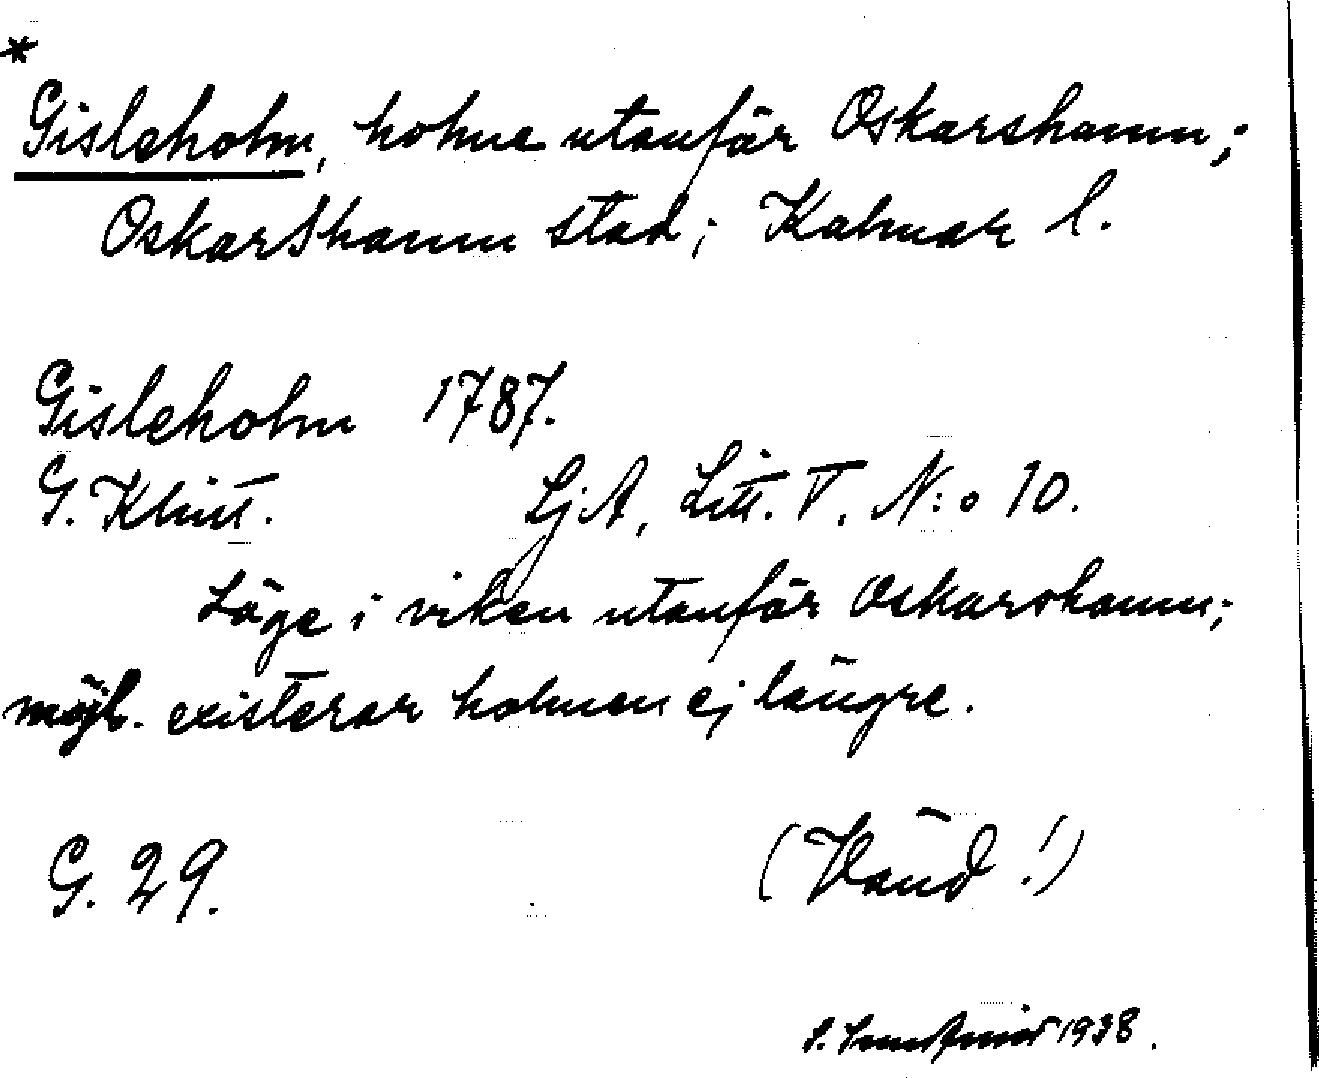 *
Gisleholm, holme utanför Oskarshamn;
Oskarshamn stad; Kalmar l.
Gisleholm 1787.
G. Klint. LjA, Litt. T. N:o 10.
Läge i viken utanför Oskarshamn;
möjl. existerar holmen ej längre.
G. 29. (Vänd!)
1938.